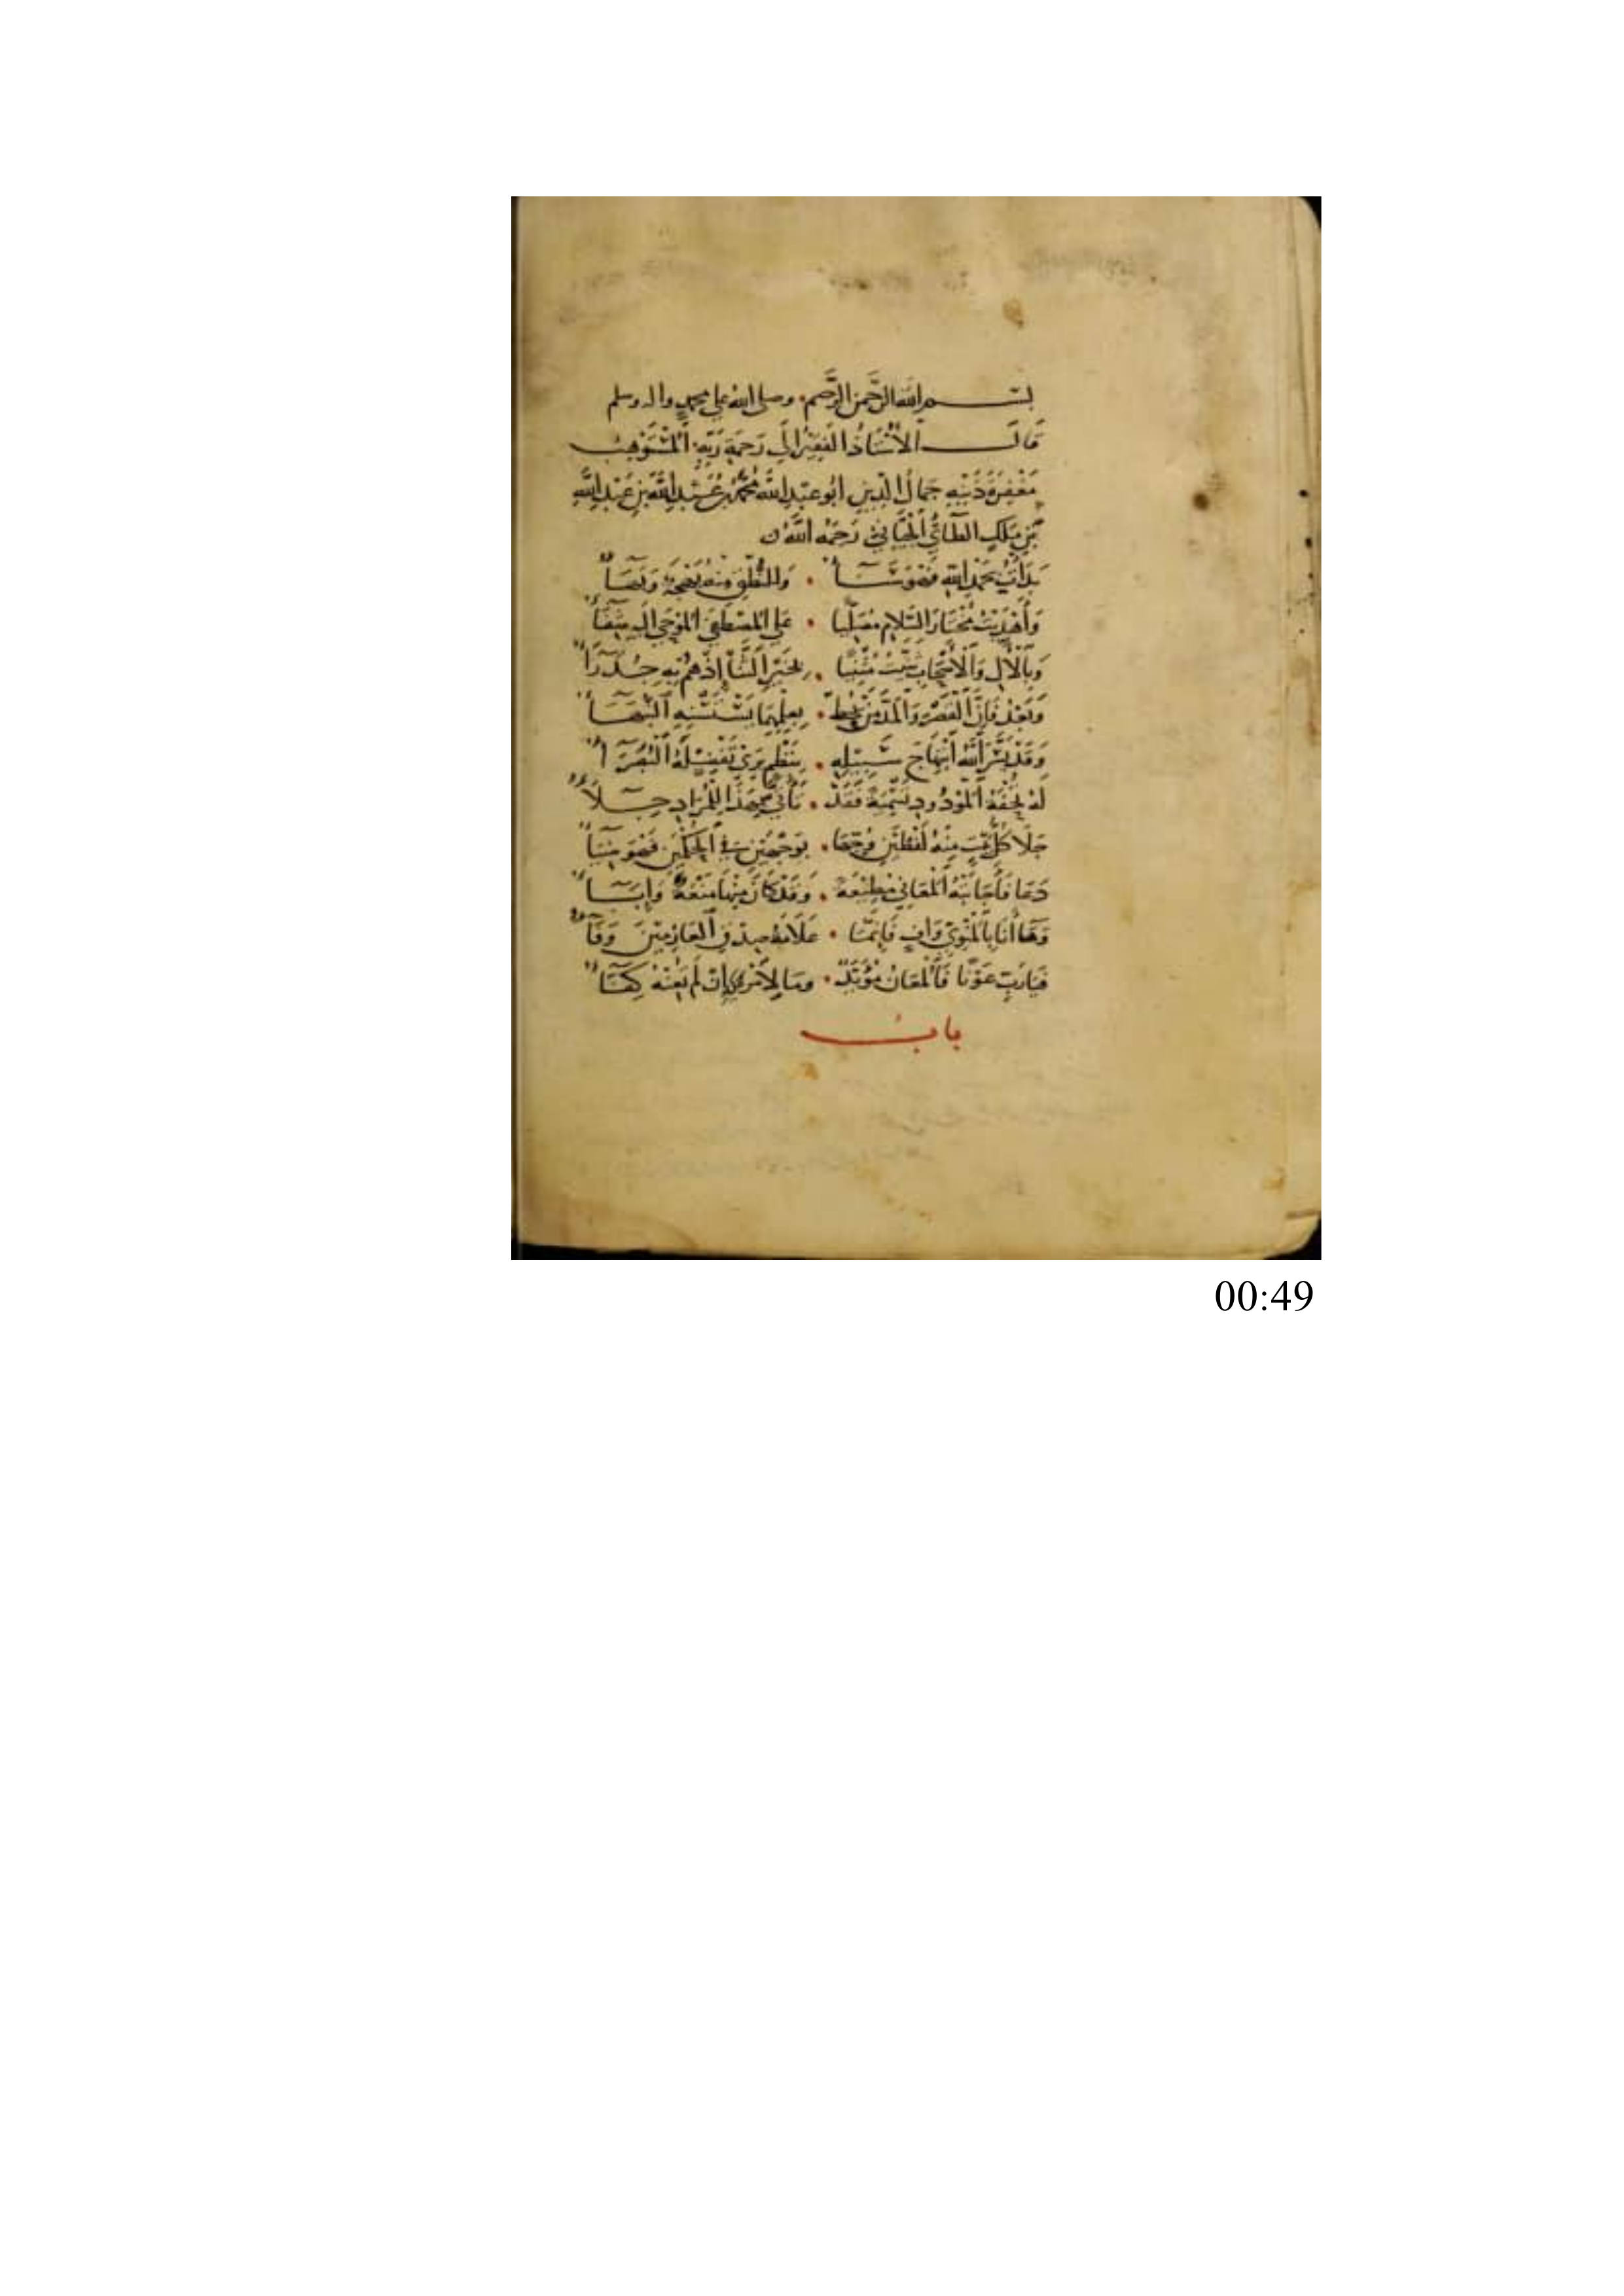 بسم الله الرحمن الرحيم • وصلى الله على محمد واله وسلم
قال الأستاذ الفقير إلى رحمة ربه المستوهب
مغفرة ذنبه جمال الدين ابو عبد الله محمد بن عبد الله بن عبد الله
بن ملك الطائي الجياني رحمه الله
بدأت بحمد الله فهو سنا • وللنطق منه بهجة وبهاء
وأهديت مختار السلام مصليا • على المصطفى الموحى إليه شفاء
وبالآل والأصحاب ثنيت مثنيا • بخير الثنا إذ هم به جدراء
وبعد فإن القصر والمد من يحط • بعلمهما يستسنه النبهاء
وقد يسر الله انتهاج سبيله • بنظم يرى تفضيله البصراء
له تحفة المودود تسمية فقد • تأتى بهذا للمراد جلاء
جلا كل بيت منه لفظين وجها • بوجهين في الحكمين فهو ضياء
دعا فأجابته المعاني مطيعة • وقد كان منها منعة وإباء
وها أنا بالمنوي واف فإنما • علامة صدق العازمين وفاء
فيا رب عونا فالمعان مؤيد • وما لامرئ إن لم تعنه كفاء
باب
00:49